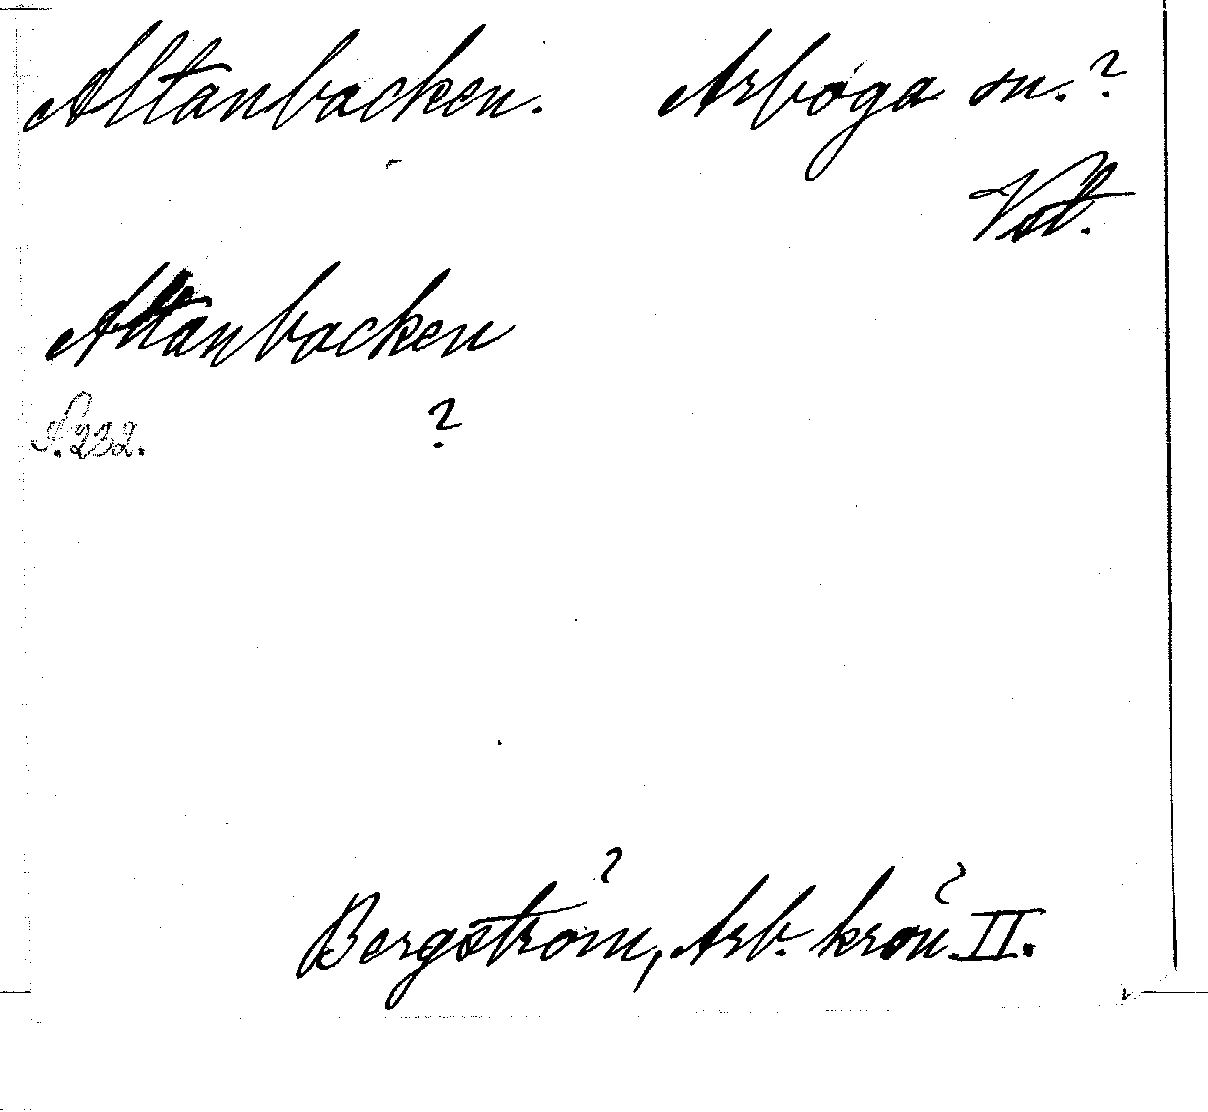 Altanbacken. Arboga sn.?
Vstl.
Altanbacken
S. 232. ?
Bergström, Arb. krön. II.